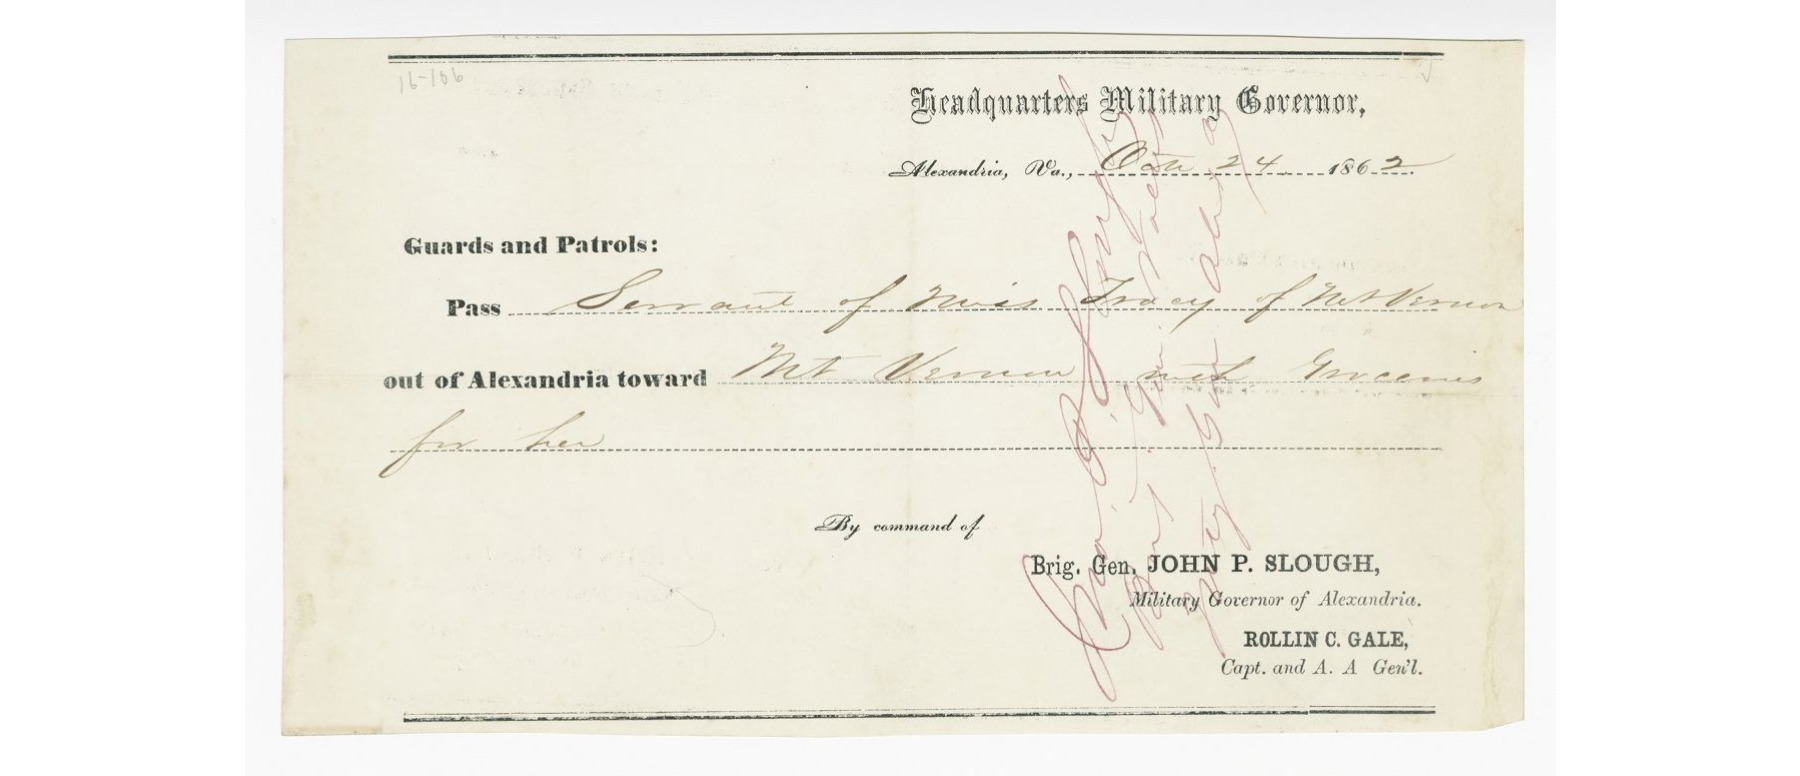 16-106
Headquarters Military Governor,
Alexandria, Va., Octr 24 1862.
Guards and Patrols:
Pass Servant of Miss Tracy of Mt Vernon
out of Alexandria toward Mt Vernon with Groceries
for her
By command of
Brig. Gen. JOHN P. SLOUGH,
Military Governor of Alexandria.
ROLLIN C. GALE,
Capt. and A. A Gen'l.